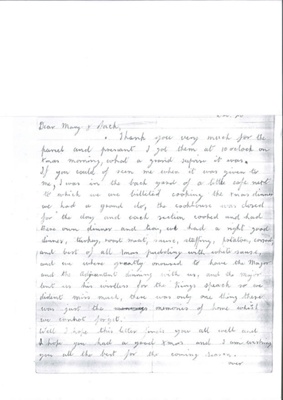 Dear Mary & Jack,
Thank you very much for the
parcel and present I got them at 10 oclock on
Xmas morning, what a grand suprise it was.
If you could of seen me when it was given to
me, I was in the back yard of a little cafe next
to which we are billeted cooking the Xmas dinner
we had a grand do, the cookhouse was closed
for the day and each section cooked and had
there own dinner and tea, we had a right good
dinner, turkey, roast meat, stuffing, potatoes,
and best of all Xmas pudding with white sauce,
and we where greatly honoured to have the Major
and the Adjutant dining with us, and the Major
lent us his wireless for the Kings speach so we
dident miss much, there was only one thing there
was just the memories of home which
we cannot forget.
Well I hope this letter finds you all well and
I hope you had a good Xmas and I am wishing
you all the best for the coming season.
over